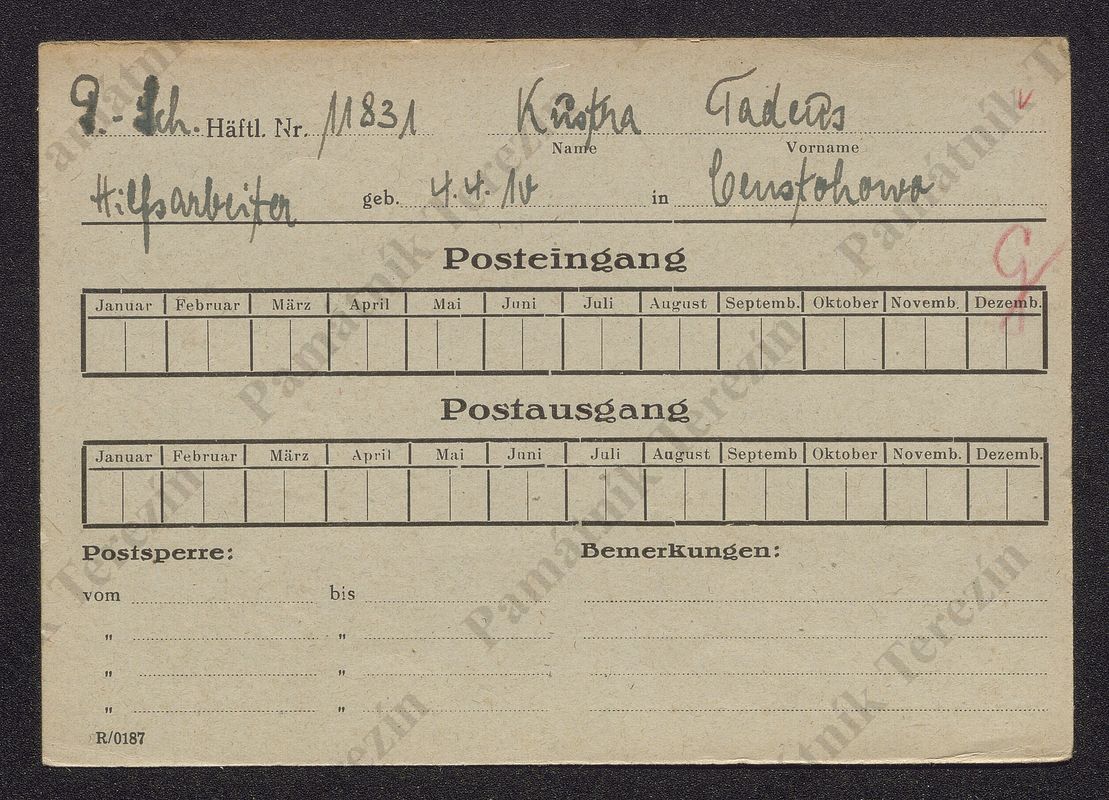 P.-Sch. Häftl. Nr. 11831 Kustra Tadeus
Name Vorname
Hilfsarbeiter geb. 4.4.10 in Censtohowa
Posteingang
Januar Februar März April Mai Juni Juli August Septemb. Oktober Novemb. Dezemb.
Postausgang
Januar Februar März April Mai Juni Juli August Septemb Oktober Novemb. Dezemb.
Postsperre: Bemerkungen:
vom bis
" "
" "
" "
R/0187
Památník Terezín